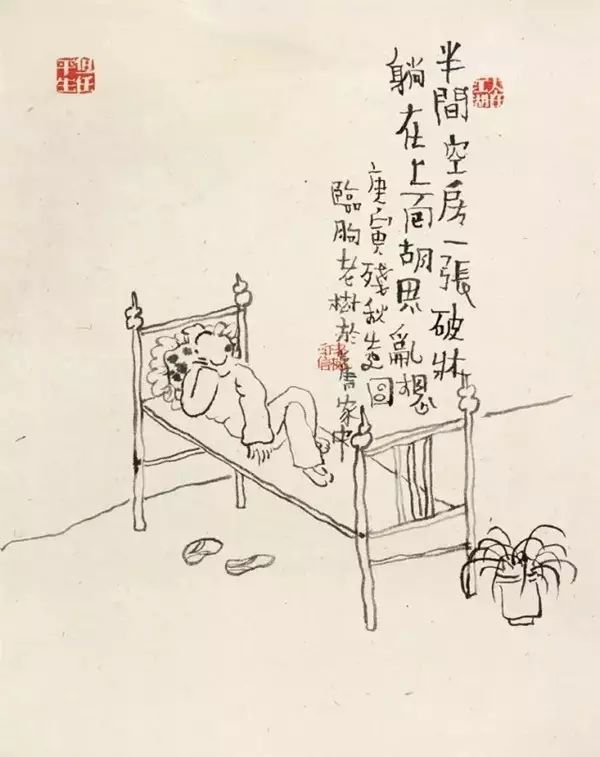 半間空房一張破牀
躺在上面胡思亂想
庚寅殘秋
臨朐老樹於家中